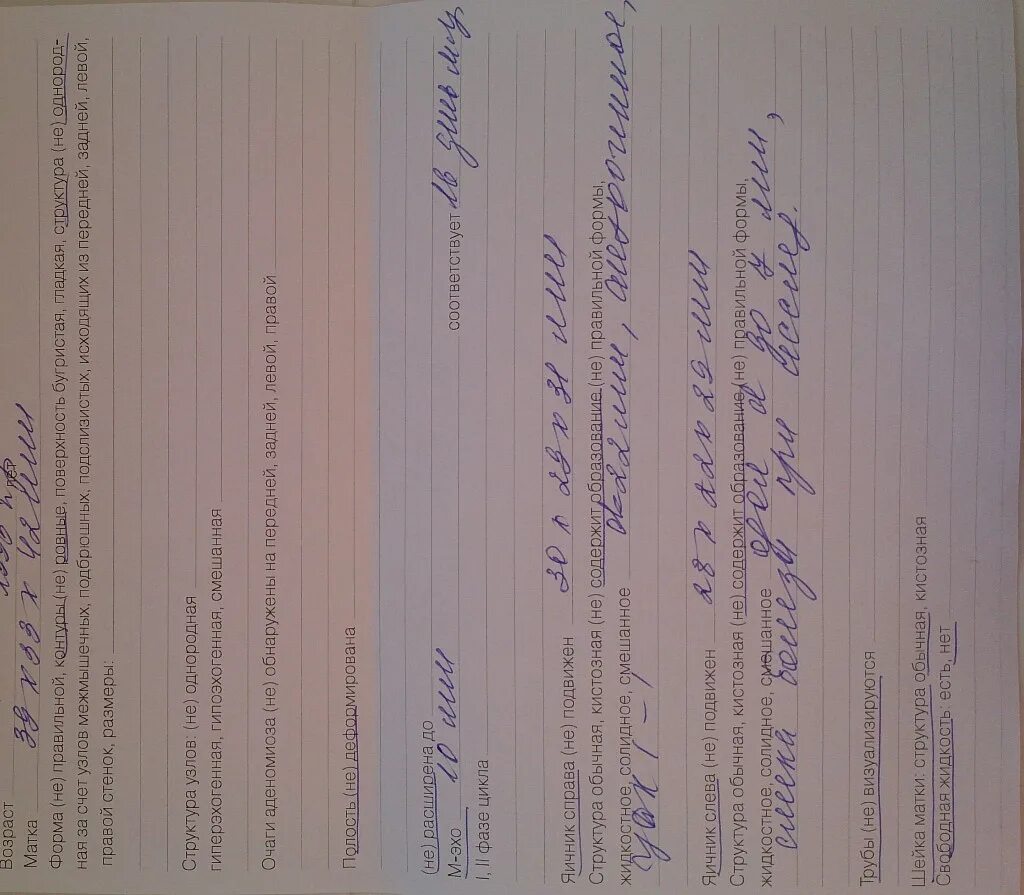 Возраст лет
Матка 39 х 33 х 42 мм
Форма (не) правильной, контуры (не) ровные, поверхность бугристая, гладкая, структура (не) однород-
ная за счет узлов межмышечных, подбрюшных, подслизистых, исходящих из передней, задней, левой,
правой стенок, размеры:
Структура узлов: (не) однородная
гиперэхогенная, гипоэхогенная, смешанная
Очаги аденомиоза (не) обнаружены на передней, задней, левой, правой
Полость (не) деформирована
(не) расширена до
М-эхо 10 мм соответствует
I, II фазе цикла
Яичник справа (не) подвижен 30 х 29 х 31 мм
Структура обычная, кистозная (не) содержит образование (не) правильной формы,
жидкостное, солидное, смешанное d-22мм,
Яичник слева (не) подвижен 28 х 22 х 29 мм
Структура обычная, кистозная (не) содержит образование (не) правильной формы,
жидкостное, солидное, смешанное d до 7 мм,
слева болезн при исслед.
Трубы (не) визуализируются
Шейка матки: структура обычная, кистозная
Свободная жидкость: есть, нет